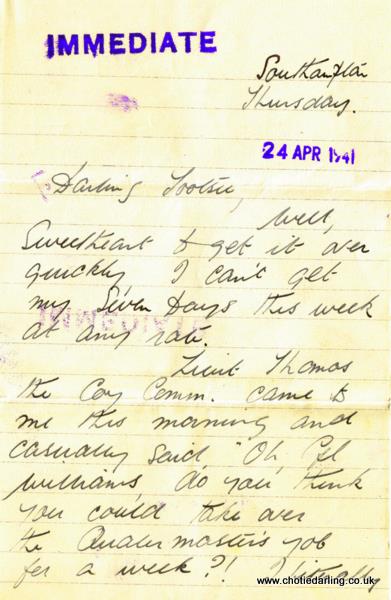 IMMEDIATE
Southampton
Thursday.
24 APR 1941
Darling Tootsie,
Well,
Sweetheart to get it over
quickly I can't get
my Seven Days this week
at any rate.
IMMEDIATE
Lieut Thomas
the Coy Comm. came to
me this morning and
casually said "Oh, Cpl
Williams, do you think
you could take over
the Quartermaster's job
for a week?!
www.chotiedarling.co.uk